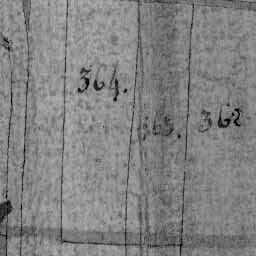 364.
363.
362